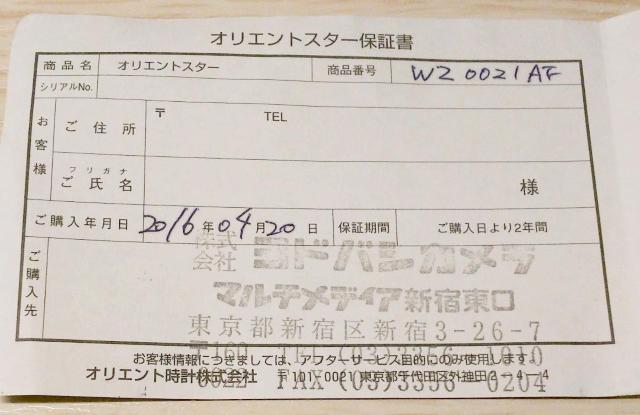 オリエントスター保証書
商品名 オリエントスター 商品番号 WZ0021AF
シリアルNo.
お客様 ご住所 〒 TEL
フリガナ
ご氏名 様
ご購入年月日 2016年04月20日 保証期間 ご購入日より2年間
ご購入先
株式会社 ヨドバシカメラ
マルチメディア新宿東口
東京都新宿区新宿3-26-7
お客様情報につきましては、アフターサービス目的にのみ使用します。
オリエント時計株式会社 〒101-0021 東京都千代田区外神田2-4-4
FAX (03)3356 0204